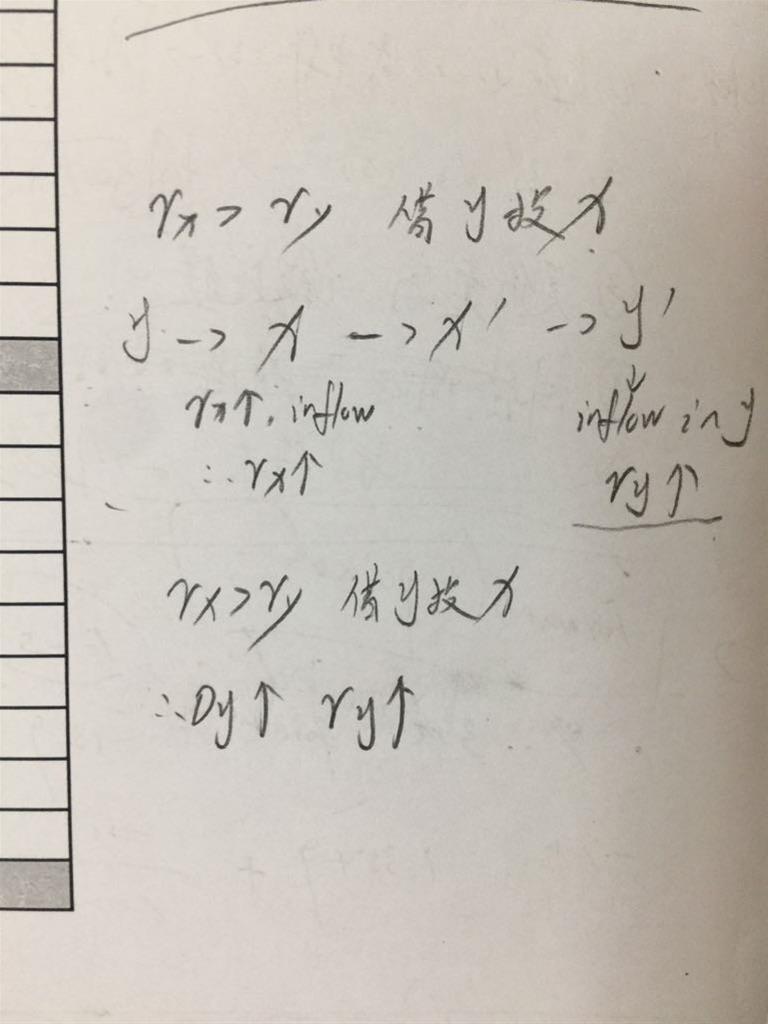 rx > ry 借y投x
y -> x -> x' -> y'
rx↑, inflow inflow in y
∴ rx↑ ry↑
rx>ry 借y投x
∴ Dy↑ ry↑